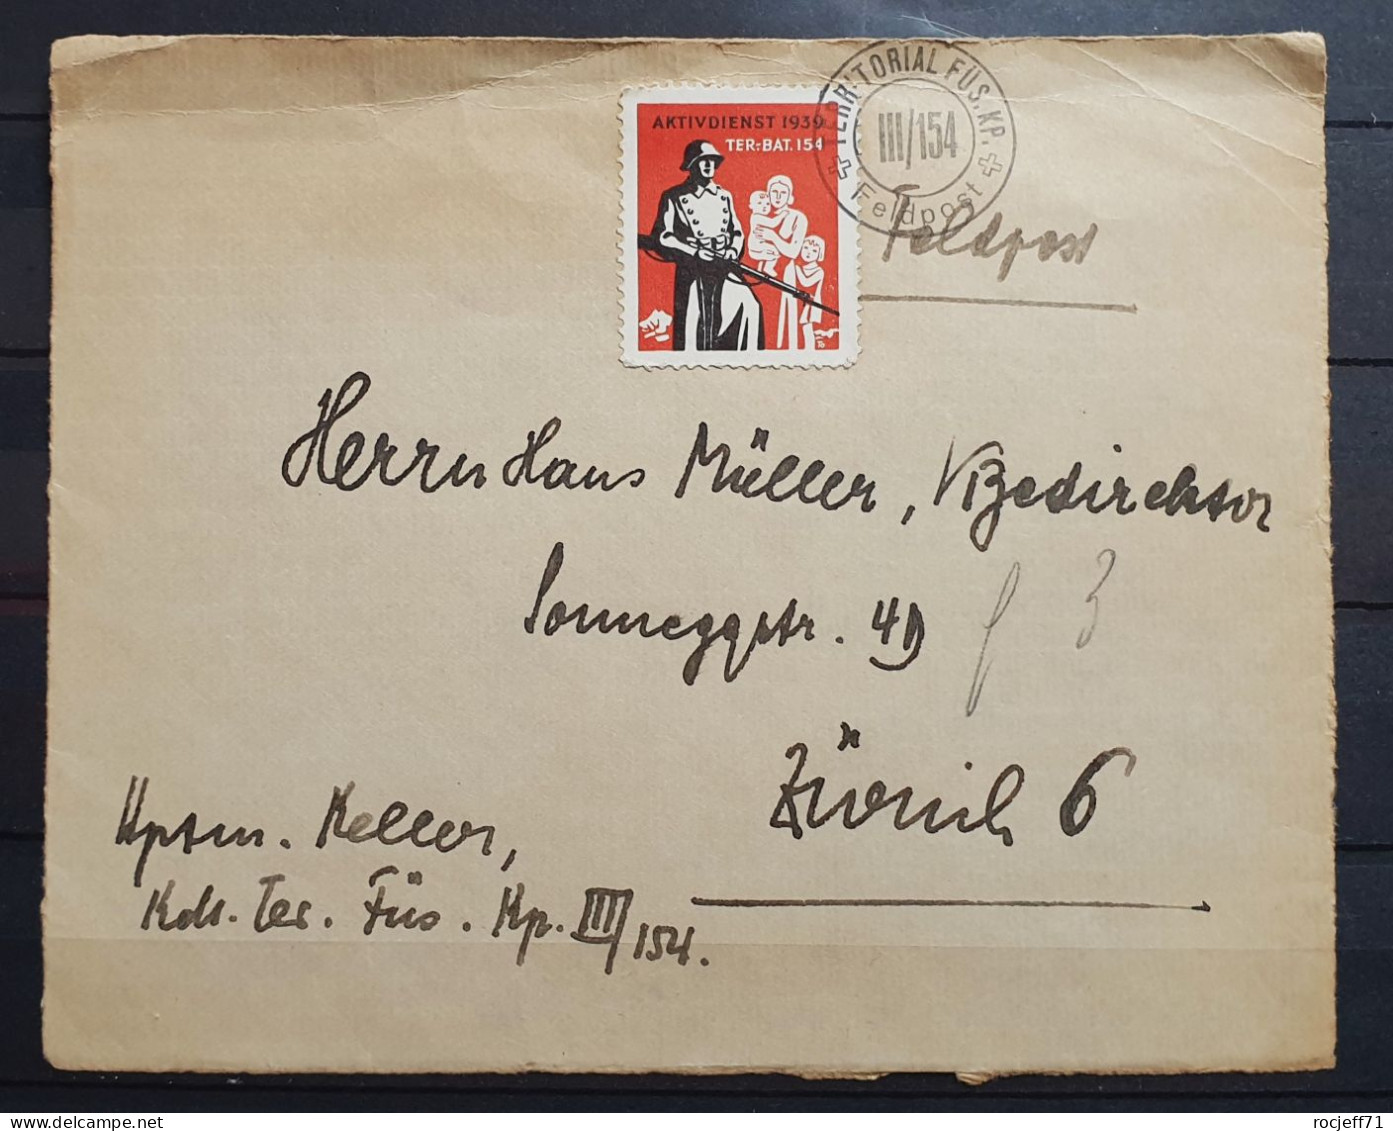 AKTIVDIENST 1939
TER.-BAT. 154
TERRITORIAL FÜS. KP.
III/154
Feldpost
Feldpost
Herrn Hans Müller, Vizedirektor
Sonneggstr. 49
Zürich 6
Hptm. Keller,
Kdt. Ter. Füs. Kp. III/154.
rocjeff71